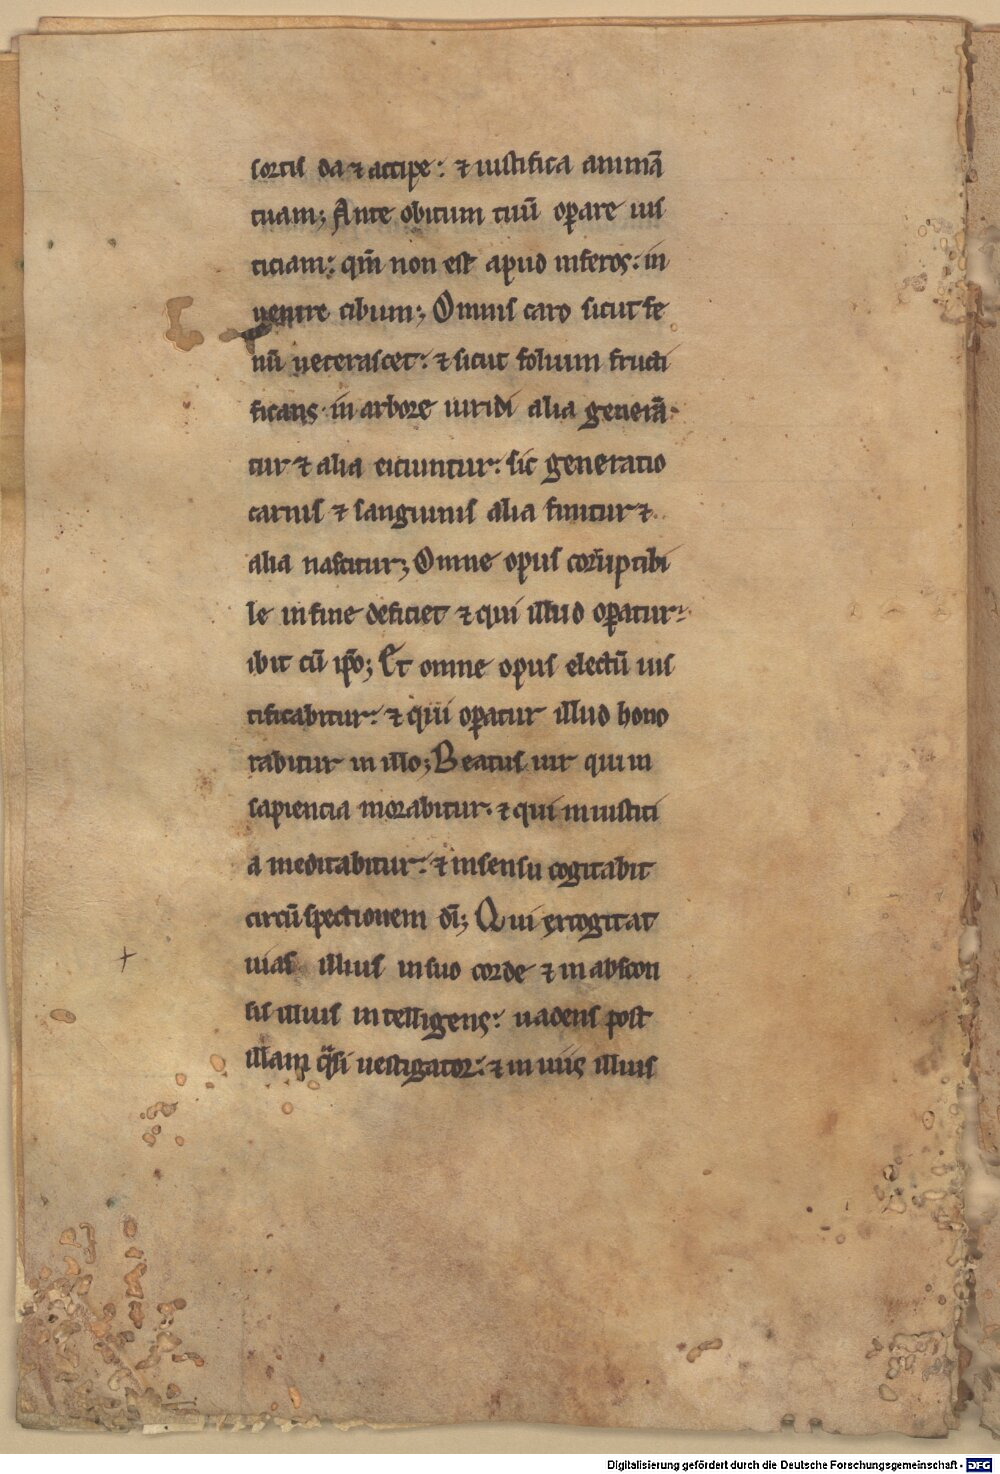 sortis da ⁊ accipe: ⁊ iustifica animā
tuam; Ante obitum tuū oꝑare ius
ticiam: qm̄ non est apud inferos: in
uenire cibum; Omnis caro sicut fe
nū ueterascet: ⁊ sicut folium fructi
ficans in arbore uiridi alia generā
tur ⁊ alia eiciuntur: sic generatio
carnis ⁊ sanguinis alia finitur ⁊
alia nascitur; Omne opus corruptibi
le in fine deficiet ⁊ qui illud oꝑatur
ibit cū ip̄o; Et omne opus electū ius
tificabitur: ⁊ qui oꝑatur illud hono
rabitur in illo; Beatus uir qui in
sapiencia morabitur. ⁊ qui in iusticī
a meditabitur: ⁊ in sensu cogitabit
circūspectionem dī; Qui excogitat
uias illius in suo corde ⁊ in abscon
sis illius intelligens: uadens post
illam q̄si uestigator: ⁊ in uiis illius
Digitalisierung gefördert durch die Deutsche Forschungsgemeinschaft - DFG